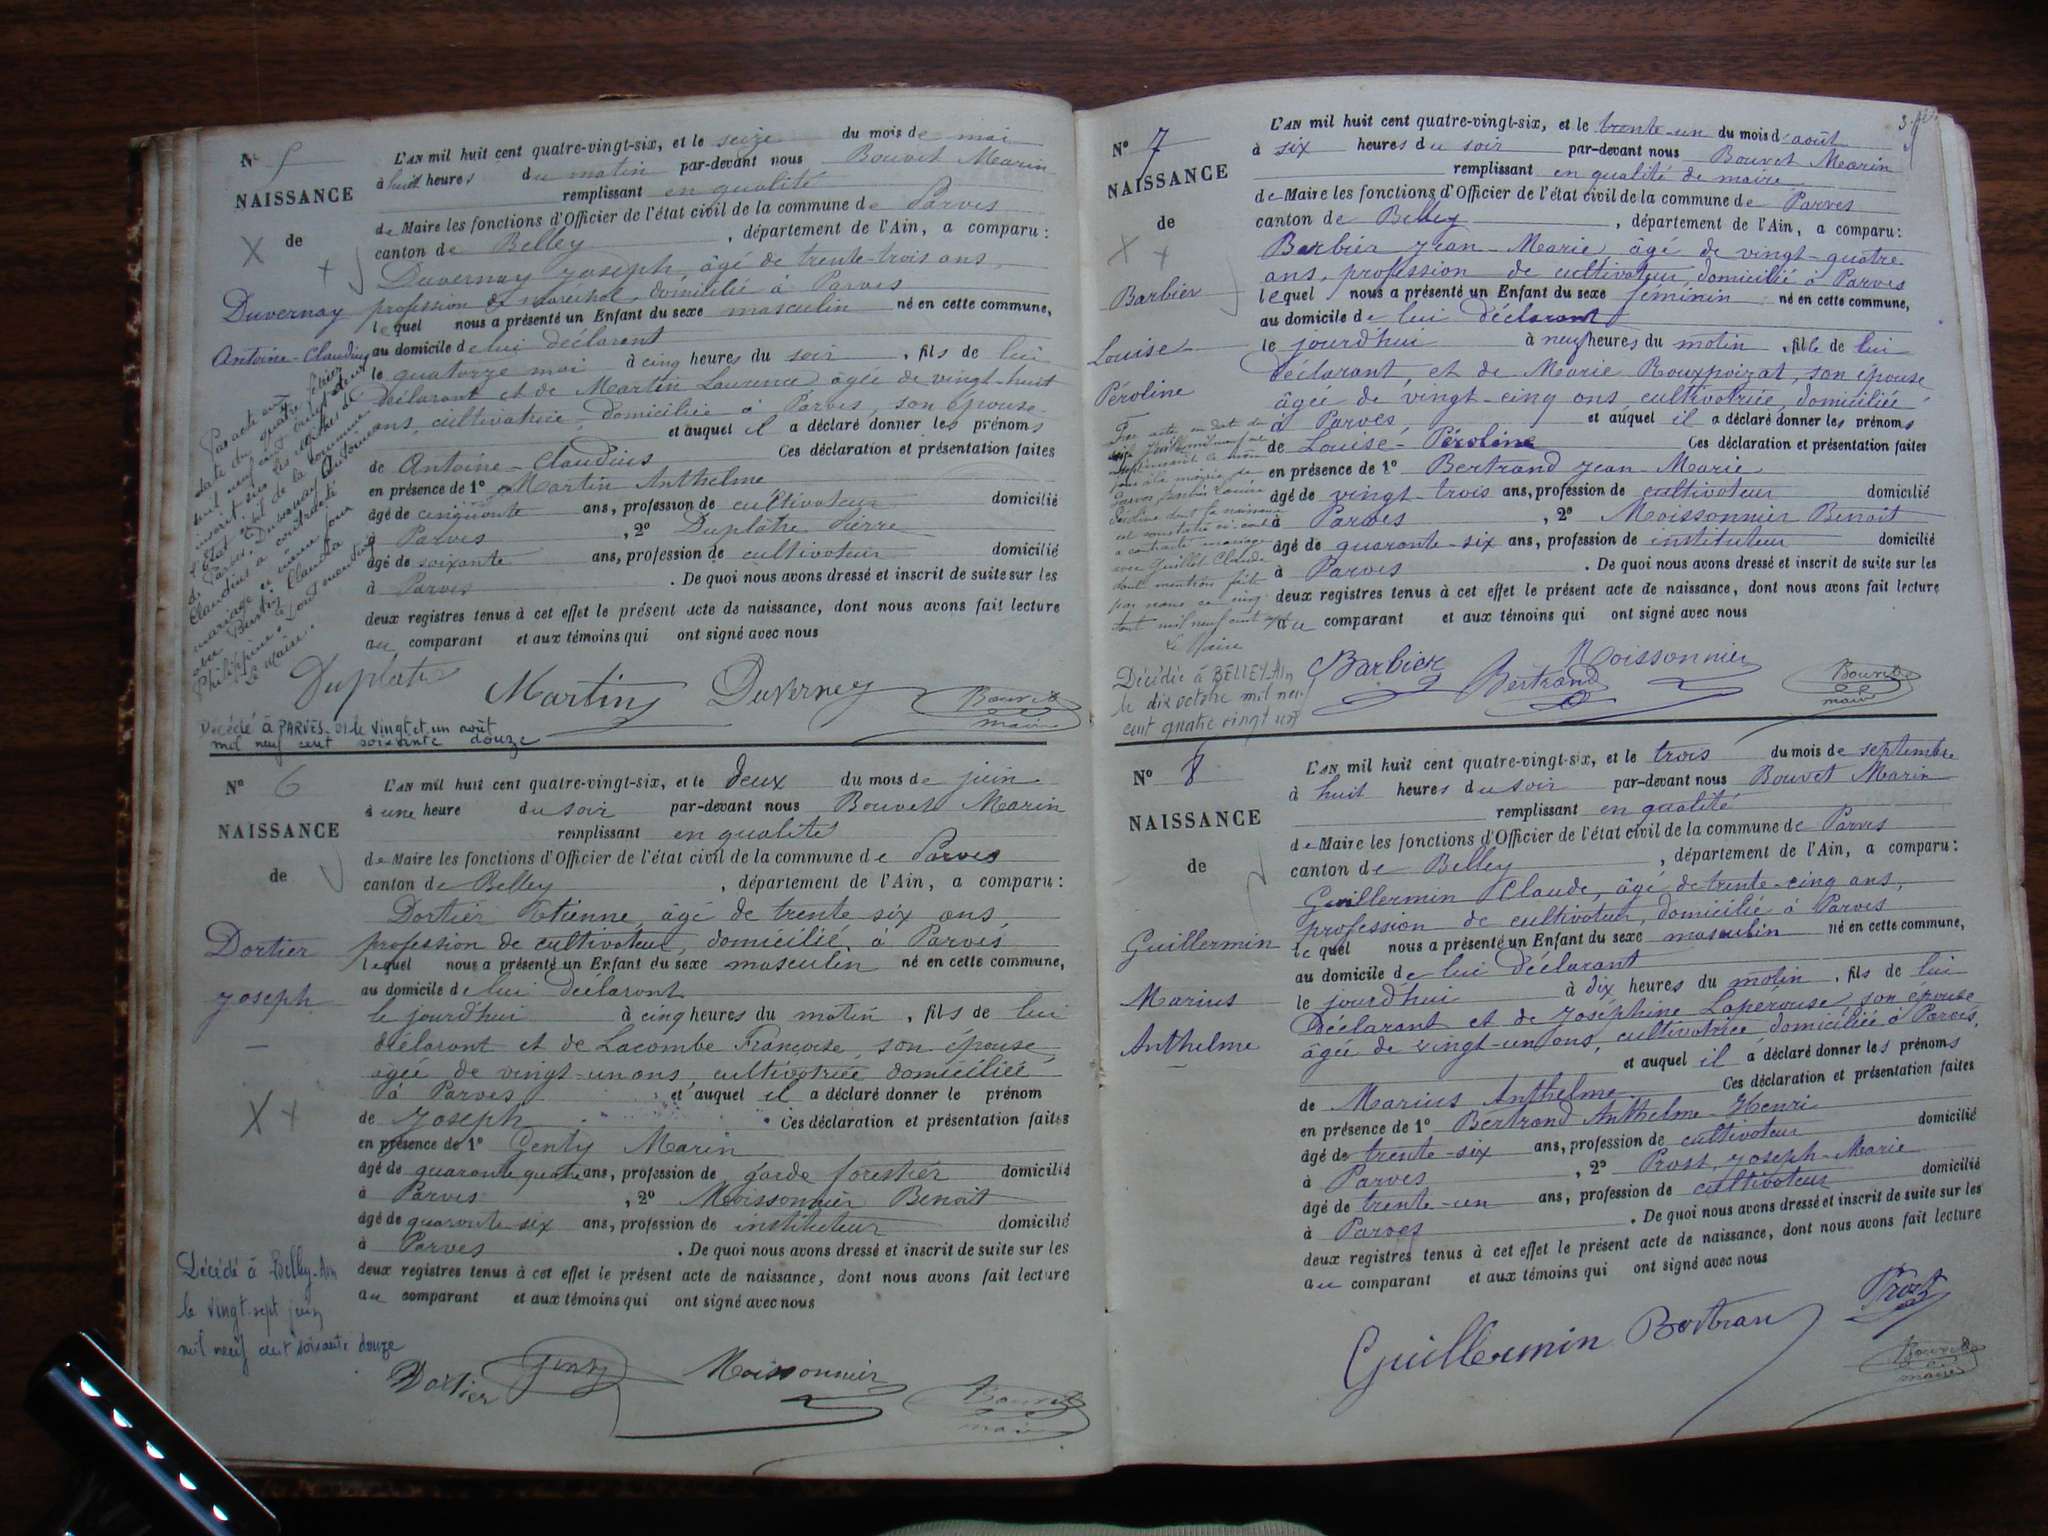 N° 5
NAISSANCE
de
Duvernay
Antoine-Claudius
L'AN mil huit cent quatre-vingt-six, et le seize du mois de mai
à huit heures du matin par-devant nous Bouvet Marin
remplissant en qualité
de Maire les fonctions d'Officier de l'état civil de la commune de Parves
canton de Belley, département de l'Ain, a comparu:
Duvernay Joseph, âgé de trente-trois ans,
profession de maréchal, domicilié à Parves
lequel nous a présenté un Enfant du sexe masculin né en cette commune,
au domicile de lui déclarant
le quatorze mai à cinq heures du soir, fils de lui
déclarant et de Martin Laurence âgée de vingt-huit
ans, cultivatrice, domiciliée à Parves, son épouse
et auquel il a déclaré donner les prénoms
de Antoine-Claudius Ces déclaration et présentation faites
en présence de 1° Martin Anthelme
âgé de cinquante ans, profession de cultivateur domicilié
à Parves, 2° Duplâtre Pierre
âgé de soixante ans, profession de cultivateur domicilié
à Parves. De quoi nous avons dressé et inscrit de suite sur les
deux registres tenus à cet effet le présent acte de naissance, dont nous avons fait lecture
au comparant et aux témoins qui ont signé avec nous
Martin Duverney Bouvet
maire
Décédé à PARVES-01-le vingt et un août
mil neuf cent soixante douze
N° 6
NAISSANCE
de
Dortier
Joseph
L'AN mil huit cent quatre-vingt-six, et le deux du mois de juin
à une heure du soir par-devant nous Bouvet Marin
remplissant en qualité
de Maire les fonctions d'Officier de l'état civil de la commune de Parves
canton de Belley, département de l'Ain, a comparu:
Dortier Etienne, âgé de trente six ans,
profession de cultivateur, domicilié à Parves
lequel nous a présenté un Enfant du sexe masculin né en cette commune,
au domicile de lui déclarant
le jourd'hui à cinq heures du matin, fils de lui
déclarant et de Lacombe Françoise, son épouse,
agée de vingt-un ans, cultivatrice, domiciliée
à Parves et auquel il a déclaré donner le prénom
de Joseph Ces déclaration et présentation faites
en présence de 1° Genty Marin
âgé de quarante quatre ans, profession de garde forestier domicilié
à Parves, 2° Moissonnier Benoit
âgé de quarante-six ans, profession de instituteur domicilié
à Parves. De quoi nous avons dressé et inscrit de suite sur les
deux registres tenus à cet effet le présent acte de naissance, dont nous avons fait lecture
au comparant et aux témoins qui ont signé avec nous
Décédé à Belley-Ain
le vingt-sept juin
mil neuf cent soixante douze
Dortier Genty Moissonnier Bouvet
maire
N° 7
NAISSANCE
de
Barbier
Louise
Péroline
L'AN mil huit cent quatre-vingt-six, et le trente-un du mois d'août
à six heures du soir par-devant nous Bouvet Marin
remplissant en qualité de maire
de Maire les fonctions d'Officier de l'état civil de la commune de Parves
canton de Belley, département de l'Ain, a comparu:
Barbier Jean-Marie, âgé de vingt-quatre
ans, profession de cultivateur domicilié à Parves
lequel nous a présenté un Enfant du sexe féminin né en cette commune,
au domicile de lui déclarant
le jourd'hui à neuf heures du matin, fille de lui
déclarant, et de Marie Rouxpoizat, son épouse
âgée de vingt-cinq ans, cultivatrice, domiciliée
à Parves et auquel il a déclaré donner les prénoms
de Louise-Péroline Ces déclaration et présentation faites
en présence de 1° Bertrand Jean-Marie
âgé de vingt-trois ans, profession de cultivateur domicilié
à Parves, 2° Moissonnier Benoit
âgé de quarante-six ans, profession de instituteur domicilié
à Parves. De quoi nous avons dressé et inscrit de suite sur les
deux registres tenus à cet effet le présent acte de naissance, dont nous avons fait lecture
au comparant et aux témoins qui ont signé avec nous
Le Maire
Barbier Bertrand Moissonnier
maire
Décédée à BELLEY-Ain
le dix octobre mil neuf
cent quatre vingt un
N° 8
NAISSANCE
de
Guillermin
Marius
Anthelme
L'AN mil huit cent quatre-vingt-six, et le trois du mois de septembre
à huit heures du soir par-devant nous Bouvet Marin
remplissant en qualité
de Maire les fonctions d'Officier de l'état civil de la commune de Parves
canton de Belley, département de l'Ain, a comparu:
Guillermin Claude, âgé de trente-cinq ans,
profession de cultivateur, domicilié à Parves
lequel nous a présenté un Enfant du sexe masculin né en cette commune,
au domicile de lui déclarant
le jourd'hui à dix heures du matin, fils de lui
déclarant et de Joséphine Laperouse, son épouse
âgée de vingt-un ans, cultivatrice domiciliée à Parves,
et auquel il a déclaré donner les prénoms
de Marius Anthelme Ces déclaration et présentation faites
en présence de 1° Bertrand Anthelme-Henri
âgé de trente-six ans, profession de cultivateur domicilié
à Parves, 2° Prost Joseph-Marie
âgé de trente-un ans, profession de cultivateur domicilié
à Parves. De quoi nous avons dressé et inscrit de suite sur les
deux registres tenus à cet effet le présent acte de naissance, dont nous avons fait lecture
au comparant et aux témoins qui ont signé avec nous
Guillermin Prost
maire